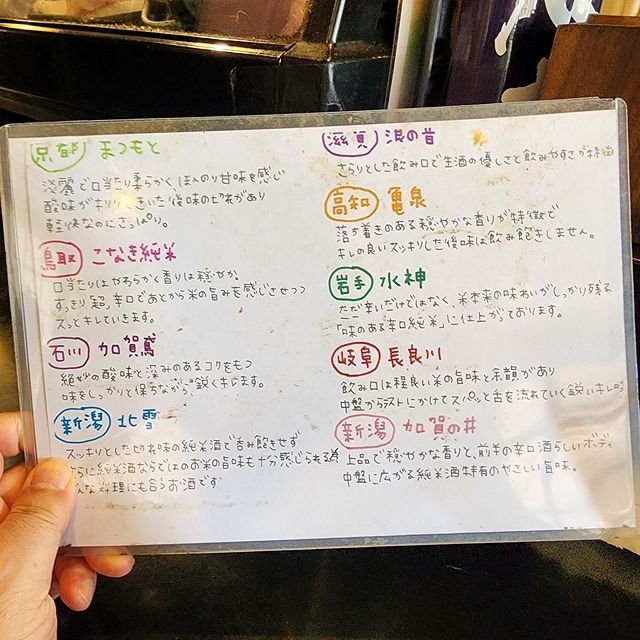 京都 まつもと
淡麗で口当たり柔らかく、ほんのり甘味を感じ
酸味がキリッときいた後味のキレがあり
軽快なのにさっぱり。
鳥取 こなき純米
口当たりはやわらかく香りは穏やか、
すっきり超辛口であとから米の旨みを感じさせつつ
スッとキレていきます。
石川 加賀鳶
絶妙の酸味と深みのあるコクをもつ
味をしっかりと保ちながら、鋭くキレます。
新潟 北雪
スッキリとした切れ味の純米酒で呑み飽きせず
さらに純米酒ならではのお米の旨味も十分感じられる為
どんな料理にも合うお酒です
滋賀 浪の音
さらりとした飲み口で生酒の優しさと飲みやすさが特徴
高知 亀泉
落ち着きのある穏やかな香りが特徴で
キレの良いスッキリした後味は飲み飽きしません。
岩手 水神
ただ辛いだけではなく、米本来の味わいがしっかり残る
「味のある辛口純米」に仕上がっております。
岐阜 長良川
飲み口は程良い米の旨味と余韻があり
中盤からラストにかけてスパッと舌を流れていく鋭いキレ口
新潟 加賀の井
上品で穏やかな香りと、前半の辛口酒らしいボディ
中盤に広がる純米酒特有のやさしい旨味。